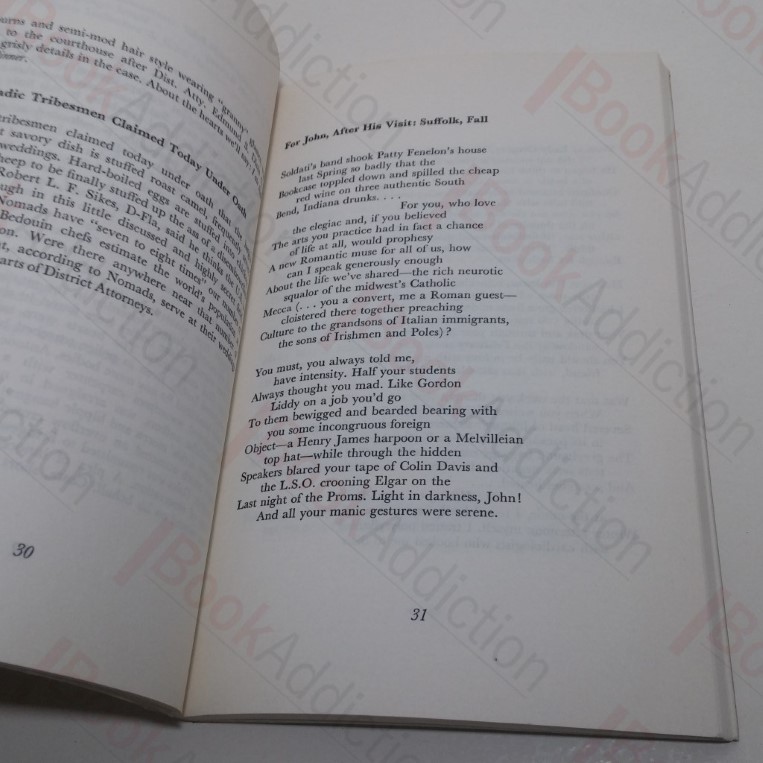 urns and semi-mod hair style wearing "granny"
to the courthouse after Dist. Atty. Edmund
grisly details in the case. About the hearts we'll say
adic Tribesmen Claimed Today Under Oath
tribesmen claimed today under oath that
t savory dish is stuffed roast camel, frequently
weddings. Hard-boiled eggs are stuffed into
heep to be finally stuffed up the ass of a
Robert L. F. Sikes, D-Fla, said he thinks the
ough in this little discussed and highly secret
Nomads have "seven to eight times" our
Bedouin chefs estimate the world's population
on. Were there anywhere near that number
t, according to Nomads, serve at their
arts of District Attorneys.
30
For John, After His Visit: Suffolk, Fall
Soldati's band shook Patty Fenelon's house
last Spring so badly that the
Bookcase toppled down and spilled the cheap
red wine on three authentic South
Bend, Indiana drunks. . . .
For you, who love
the elegiac and, if you believed
The arts you practice had in fact a chance
of life at all, would prophesy
A new Romantic muse for all of us, how
can I speak generously enough
About the life we've shared—the rich neurotic
squalor of the midwest's Catholic
Mecca (. . . you a convert, me a Roman guest—
cloistered there together preaching
Culture to the grandsons of Italian immigrants,
the sons of Irishmen and Poles)?
You must, you always told me,
have intensity. Half your students
Always thought you mad. Like Gordon
Liddy on a job you'd go
To them bewigged and bearded bearing with
you some incongruous foreign
Object—a Henry James harpoon or a Melvilleian
top hat—while through the hidden
Speakers blared your tape of Colin Davis and
the L.S.O. crooning Elgar on the
Last night of the Proms. Light in darkness, John!
And all your manic gestures were serene.
31
BookAddiction